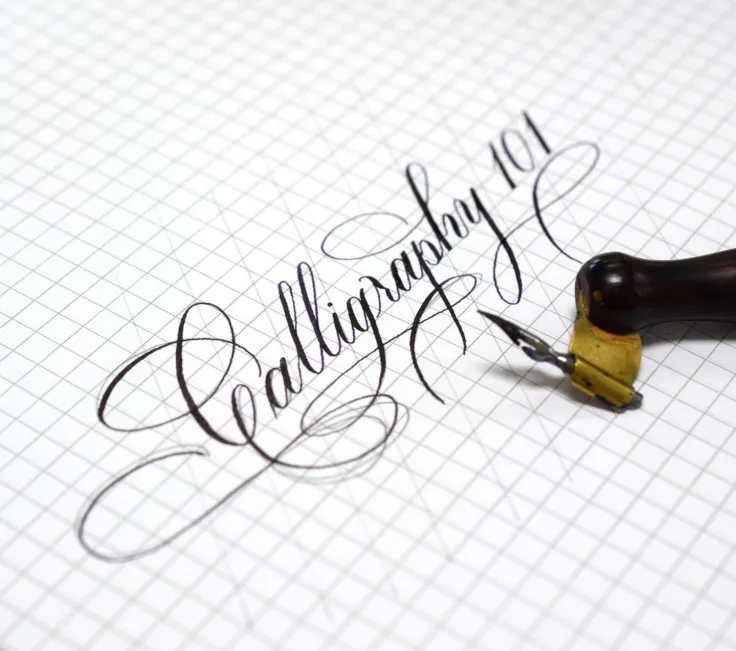 Calligraphy 101